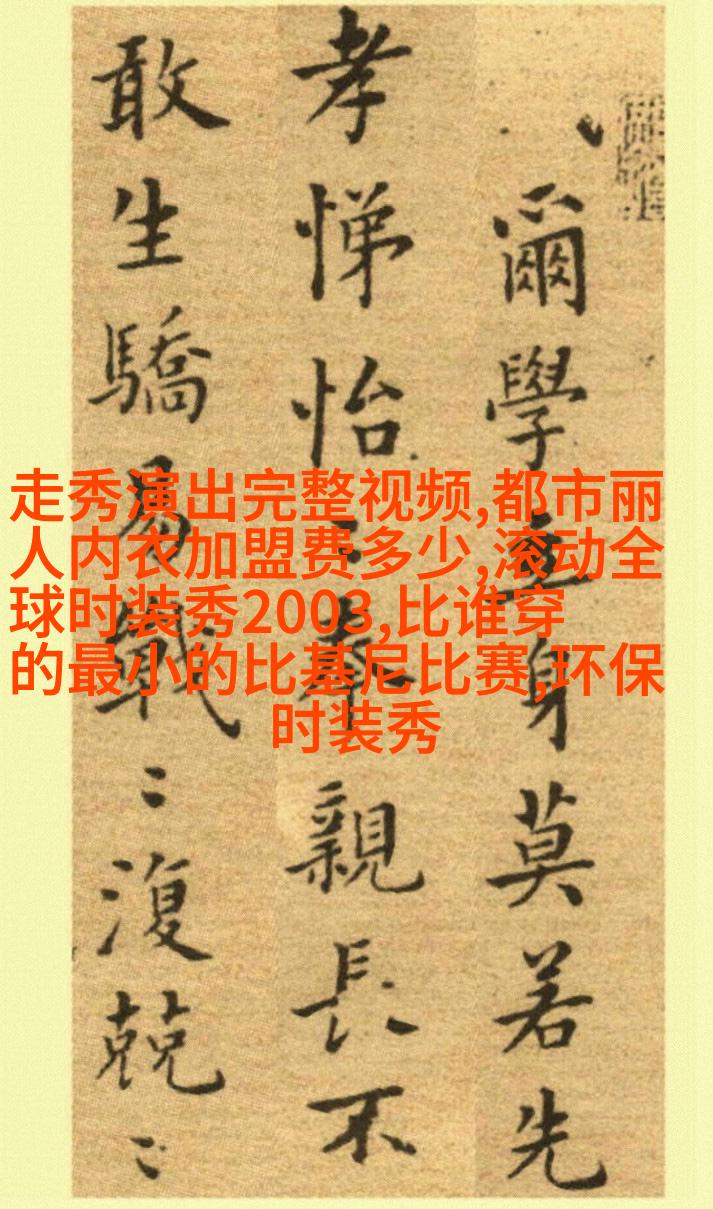 爾學立身莫若先
孝悌怡〻奉親長不
敢生驕易戰〻復兢〻
走秀演出完整视频,都市丽
人内衣加盟费多少,滚动全
球时装秀2003,比谁穿
的最小的比基尼比赛,环保
时装秀